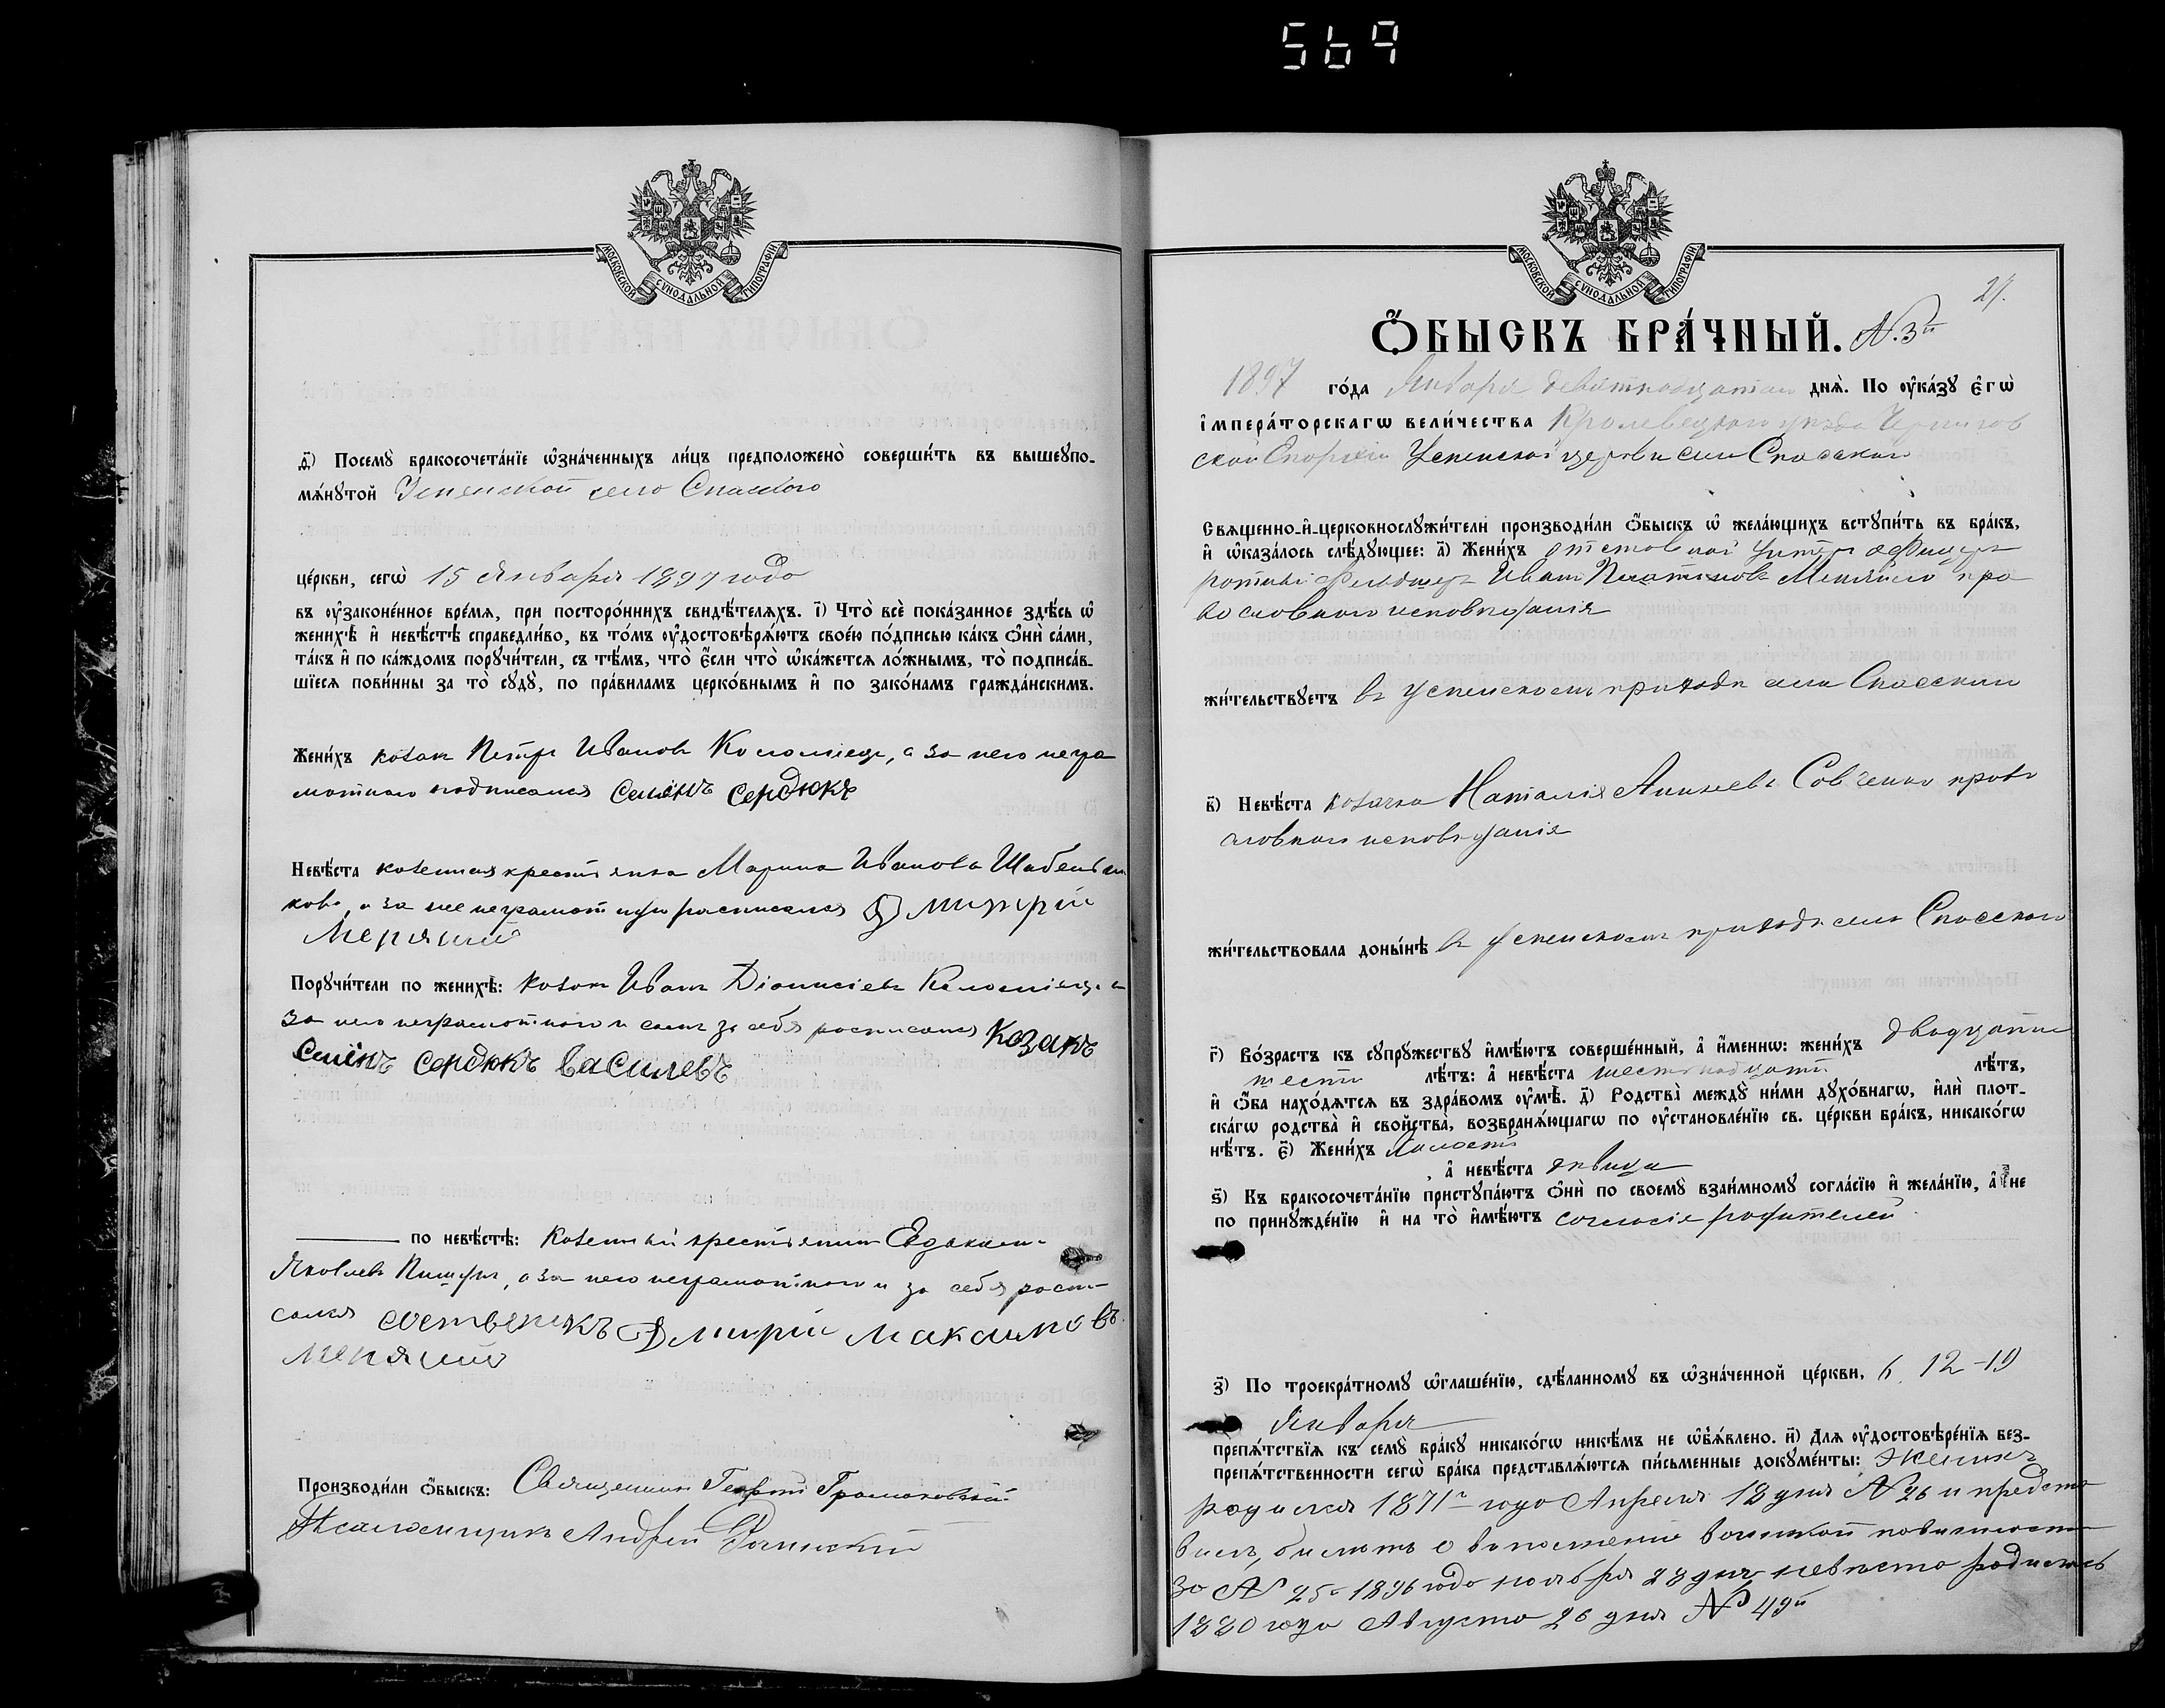 569
МОСКОВСКОЙ СѴНОДАЛЬНОЙ ТИПОГРАФІИ
ѳ҃) Посемꙋ бракосочета́нїе ѡ҆зна́ченныхъ ли́цъ предположено̀ соверши́ть въ вышеꙋпо-
мѧ́нꙋтой Успенской села Спасского
це́ркви, сегѡ̀ 15 Января 1897 года
въ ᲂу҆зако́ненное вре́мѧ, при посторо́ннихъ свидѣ́телѧхъ. і҃) Что̀ всѐ пока́занное здѣ́сь ѡ҆
женихѣ̀ и҆ невѣ́стѣ справедли́во, въ то́мъ ᲂу҆достовѣрѧ́ютъ свое́ю по́дписью ка́къ ѻ҆нѝ са́ми,
та́къ и҆ по ка́ждомъ порꙋчи́тели, съ тѣ́мъ, что̀ є҆́сли что̀ ѡ҆ка́жетсѧ ло́жнымъ, то̀ подписа́в-
шїесѧ пови́нны за то̀ сꙋдꙋ̀, по пра́виламъ церко́внымъ и҆ по зако́намъ гражда́нскимъ.
Жени́хъ козакъ Петръ Ивановъ Коломіецъ, а за него негра
мотнаго подписался Семенъ Сердюкъ
Невѣ́ста казенная крестьянка Марина Иванова Шабельни
кова, а за нее неграмотную расписался Дмитрій
Меряний
Порꙋчи́тели по женихѣ̀: козакъ Иванъ Діонисіевъ Коломіецъ а
за него неграмотнаго и самъ за себя росписался Козакъ
Семенъ Сердюкъ Василевъ
по невѣ́стѣ: Казенный крестьянинъ Евдокимъ
Яковлевъ, а за него неграмотного и за себя роспи
сался Дмитрій Максимовъ
Меряний
Производи́ли ѻ҆́быскъ: Священникъ Георгій Громаковскій
Псаломщикъ Андрей
МОСКОВСКОЙ СѴНОДАЛЬНОЙ ТИПОГРАФІИ
21.
Ѻ҆́БЫСКЪ БРА́ЧНЫЙ. N. 3й
1897 го́да Января девятнадцатаго днѧ̀. По ᲂу҆ка́зꙋ є҆гѡ̀
і҆мпера́торскагѡ вели́чества Кролевецкаго уѣзда Чернигов
ской Епархіи Успенской церкви села Спасского
Свѧще́нно-и҆-церковнослꙋжи́тели производи́ли ѻ҆́быскъ ѡ҆ жела́ющихъ встꙋпи́ть въ бра́къ,
и҆ ѡ҆каза́лось слѣ́дꙋющее: а҃) Жени́хъ отставной Унтеръ офицеръ
ротный фельдшеръ Иванъ Платоновъ пра
вославнаго исповѣданія
жи́тельствꙋетъ въ Успенскомъ приходѣ села Спасского
в҃) Невѣ́ста козачка Наталія Савченко право
славнаго исповѣданія
жи́тельствовала доны́нѣ въ Успенскомъ приходѣ села Спасского
г҃) Во́зрастъ къ сꙋпрꙋ́жествꙋ и҆мѣ́ютъ соверше́нный, а҆ и҆́меннѡ: жени́хъ двадцати
шести лѣ́тъ: а҆ невѣ́ста шестнадцати лѣ́тъ,
и҆ ѻ҆́ба нахо́дѧтсѧ въ здра́вомъ ᲂу҆мѣ̀. д҃) Родства̀ междꙋ̀ ни́ми дꙋхо́внагѡ, и҆лѝ плот-
ска́гѡ родства̀ и҆ сво́йства̀, возбранѧ́ющагѡ по ᲂу҆становле́нїю св. це́ркви бра́къ, никако́гѡ
нѣ́тъ. є҃) Жени́хъ Холостъ
, а҆ невѣ́ста дѣвица
ѕ҃) Къ бракосочета́нїю пристꙋпа́ютъ ѻ҆нѝ по своемꙋ̀ взаи́мномꙋ согла́сїю и҆ жела́нїю, а҆ не
по принꙋжде́нїю и҆ на то̀ и҆мѣ́ютъ согласіе родителей
з҃) По троекра́тномꙋ ѡ҆глаше́нїю, сдѣ́ланномꙋ въ ѡ҆зна́ченной це́ркви, 6, 12-19
Января
препѧ́тствїѧ къ семꙋ̀ бра́кꙋ никако́гѡ никѣ́мъ не ѡ҆б̾ѧ́влено. и҃) Длѧ ᲂу҆достовѣре́нїѧ без-
препѧ́тственности сегѡ̀ бра́ка представлѧ́ютсѧ пи́сьменные докꙋме́нты: Женихъ
родился 1871го года Апреля 18 дня N 26 и предста
вилъ, билетъ о выполненіи воинской повинности
за N 25 1896 года ноября 28 дня невѣста родилась
1880 года Августа 26 дня № 49й